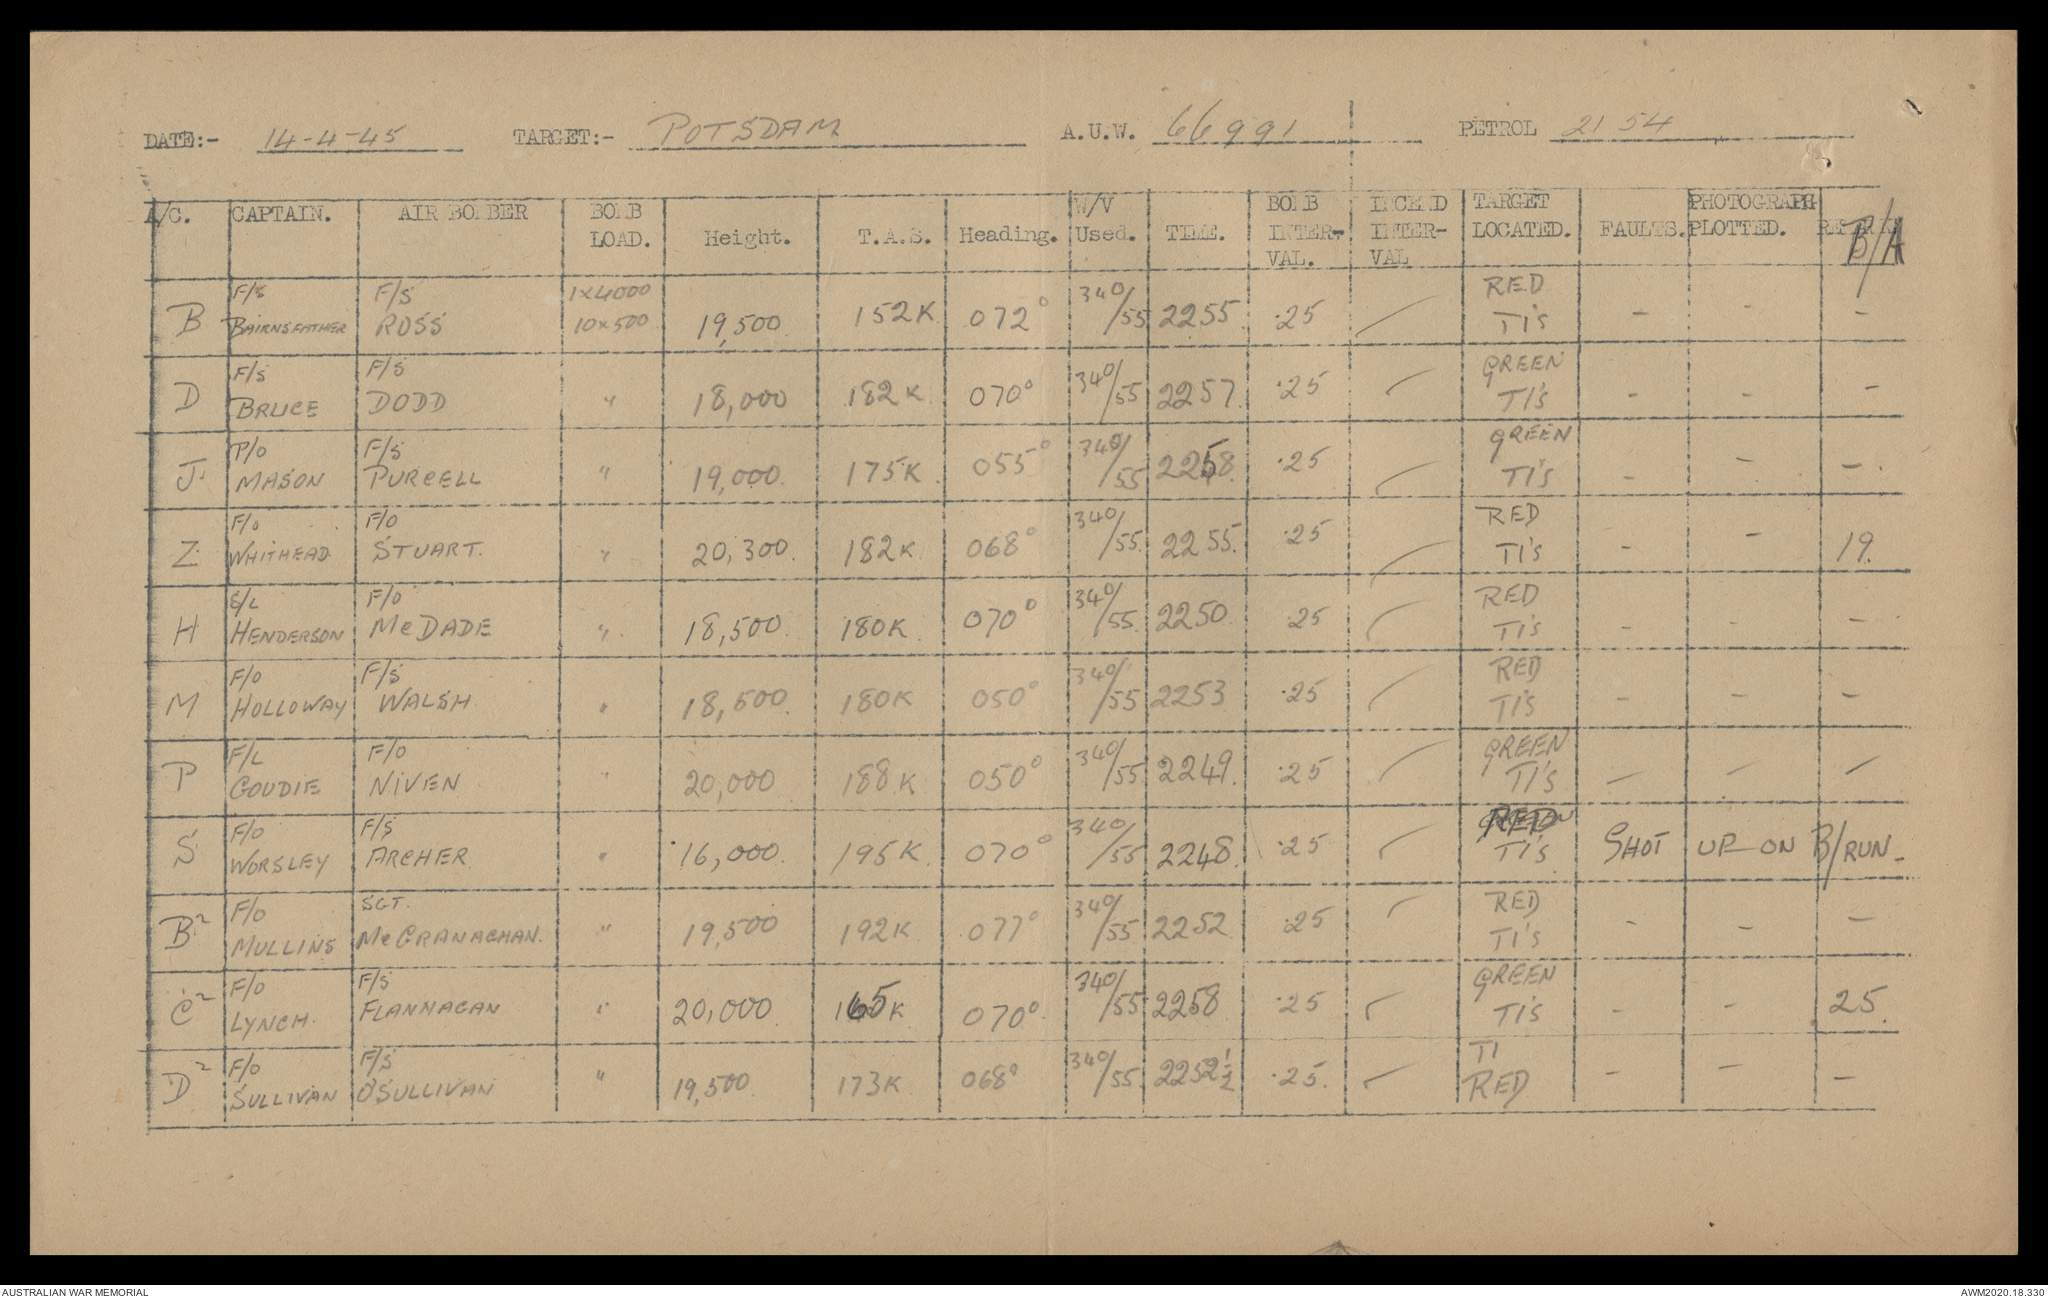 DATE:- 14-4-45 TARGET:- POTSDAM A.U.W. 66991 PETROL 2154
A/C. CAPTAIN. AIR BOMBER BOMB LOAD. Height. T.A.S. Heading. W/V Used. TIME. BOMB INTER-VAL. INCEND INTER-VAL TARGET LOCATED. FAULTS. PHOTOGRAPH PLOTTED. B/A
B F/S BAIRNSFATHER F/S ROSS 1x4000 10x500 19,500 152K 072° 340/55 2255 .25 RED TI's - - -
D F/S BRUCE F/S DODD " 18,000 182K 070° 340/55 2257. .25 GREEN TI's - - -
J. P/O MASON F/S PURCELL " 19,000. 175K 055° 340/55 2258. .25 GREEN TI's - - -.
Z F/O WHITHEAD F/O STUART. " 20,300. 182K 068° 340/55. 2255. .25 RED TI's - - 19.
H S/L HENDERSON F/O McDADE " 18,500. 180K. 070° 340/55. 2250. .25 RED TI's - - -
M F/O HOLLOWAY F/S WALSH. " 18,500. 180K 050° 340/55 2253 .25 RED TI's - - -
P F/L GOUDIE F/O NIVEN " 20,000 188K 050° 340/55 2249. .25 GREEN TI's - - -
S F/O WORSLEY F/S ARCHER " 16,000. 195K. 070° 340/55 2248. .25 RED TI's SHOT UP ON B/RUN-
B² F/O MULLINS SGT. McGRANAGHAN. " 19,500 192K 077° 340/55 2252 .25 RED TI's - - -
C² F/O LYNCH. F/S FLANNAGAN " 20,000 165K 070° 340/55 2258 .25 GREEN TI's - - 25.
D² F/O SULLIVAN F/S O'SULLIVAN " 19,500 173K 068° 340/55 2252½ .25. TI RED - - -
AUSTRALIAN WAR MEMORIAL AWM2020.18.330